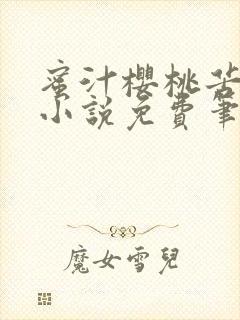 蜜汁櫻桃苦
小說免費筆
魔女雪兒